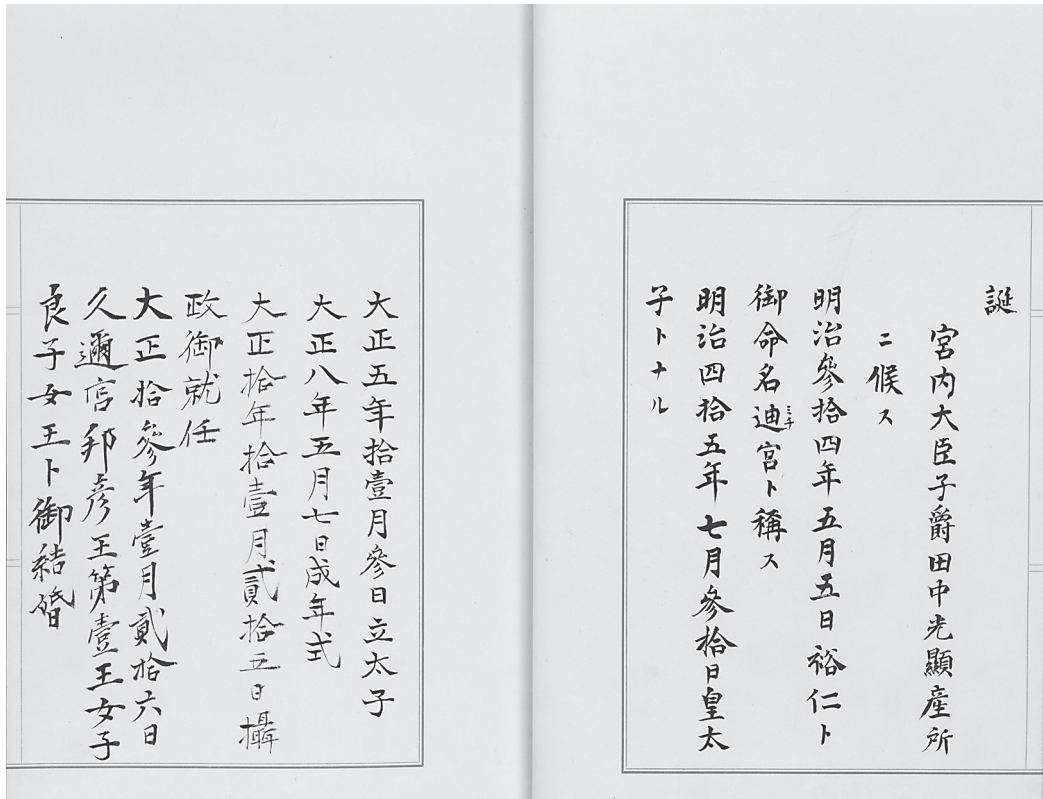 誕
宮内大臣子爵田中光顯産所
ニ候ス
明治參拾四年五月五日裕仁ト
御命名迪宮ト稱ス
ミチ
明治四拾五年七月參拾日皇太
子トナル
大正五年拾壹月參日立太子
大正八年五月七日成年式
大正拾年拾壹月貳拾五日攝
政御就任
大正拾參年壹月貳拾六日
久邇宮邦彦王第壹王女子
良子女王ト御結婚